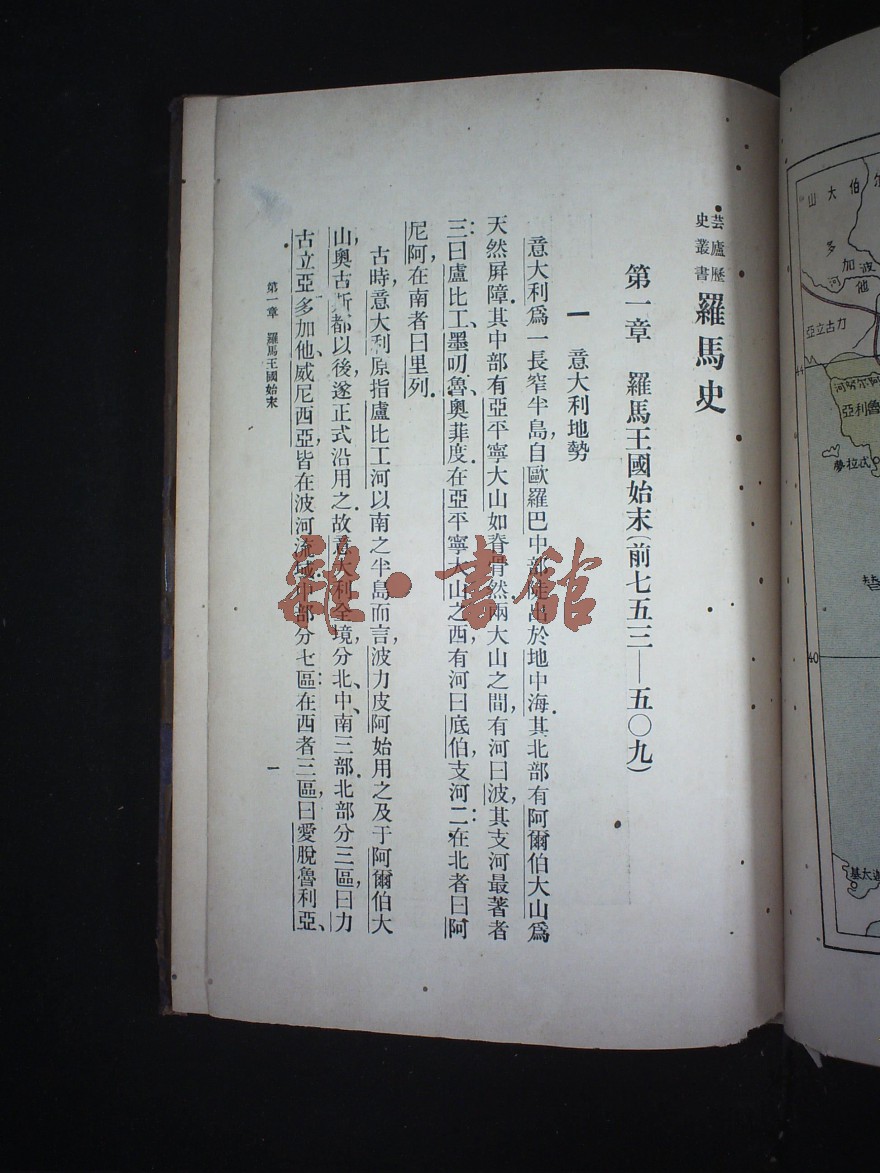 芸廬歷
史叢書 羅馬史
第一章 羅馬王國始末(前七五三—五〇九)
一 意大利地勢
意大利爲一長窄半島，自歐羅巴中部陡出於地中海。其北部有阿爾伯大山爲
天然屏障。其中部有亞平寧大山如脊骨然。兩大山之間，有河曰波，其支河最著者
三：曰盧比工、墨叨魯、奧菲度。在亞平寧大山之西有河曰底伯，支河二：在北者曰阿
尼阿，在南者曰里列。
古時，意大利原指盧比工河以南之半島而言，波力皮阿始用之及于阿爾伯大
山，奧古斯都以後，遂正式沿用之。故意大利全境，分北、中、南三部。北部分三區，曰力
古立亞、多加他、威尼西亞，皆在波河流域。中部分七區：在西者三區，曰愛脫魯利亞、
第一章 羅馬王國始末
一
雜·書館
爾伯大山
多加他
波河
力古立亞
44
阿爾努河
魯利亞
武拉夢
40
替
基太迦